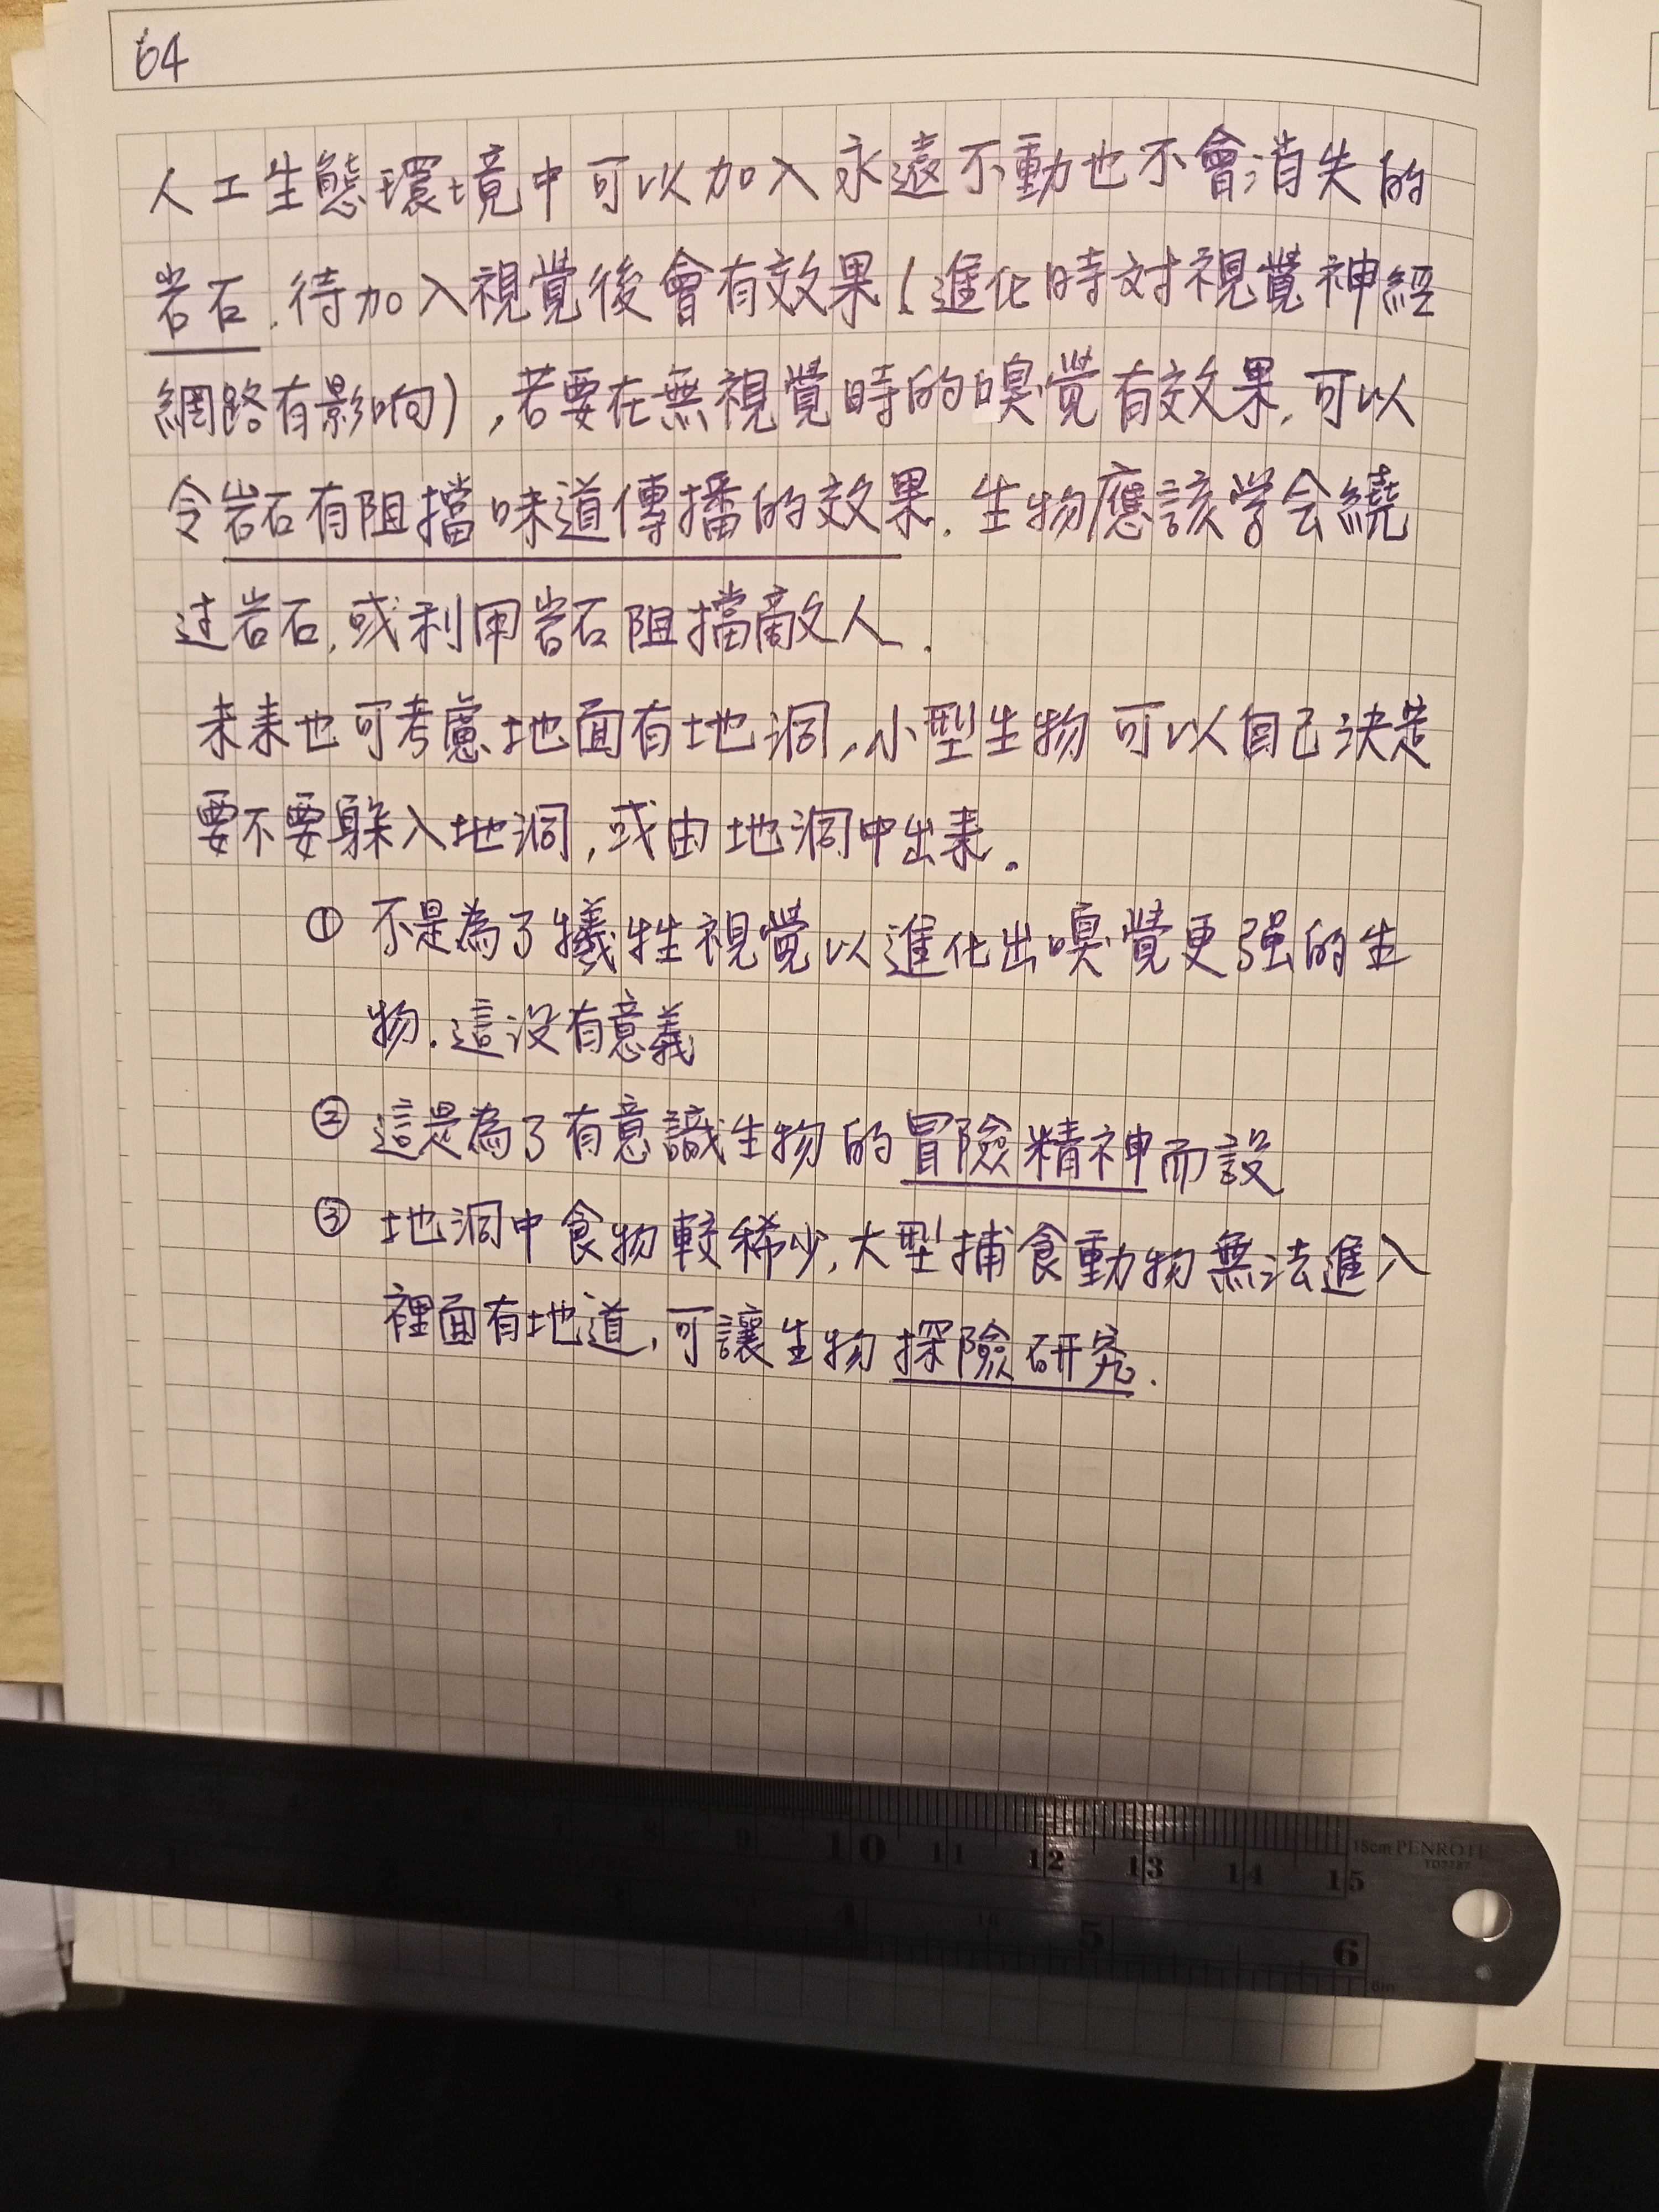 64
人工生態環境中可以加入永遠不動也不會消失的
岩石.待加入視覺後會有效果(進化時对視覺神經
網路有影响),若要在無視覺時的嗅覚有效果,可以
令岩石有阻擋味道傳播的效果.生物應該学会繞
过岩石,或利用岩石阻擋敵人.
未来也可考慮地面有地洞,小型生物可以自己決定
要不要躲入地洞,或由地洞中出来。
① 不是為了犧牲視覺以進化出嗅覺更强的生
物.這没有意義
② 這是為了有意識生物的冒險精神而設
③ 地洞中食物較稀少,大型捕食動物無法進入
裡面有地道,可讓生物探險研究.
8 9 10 11 12 13 14 15
15cm PENROTE
4 5 6